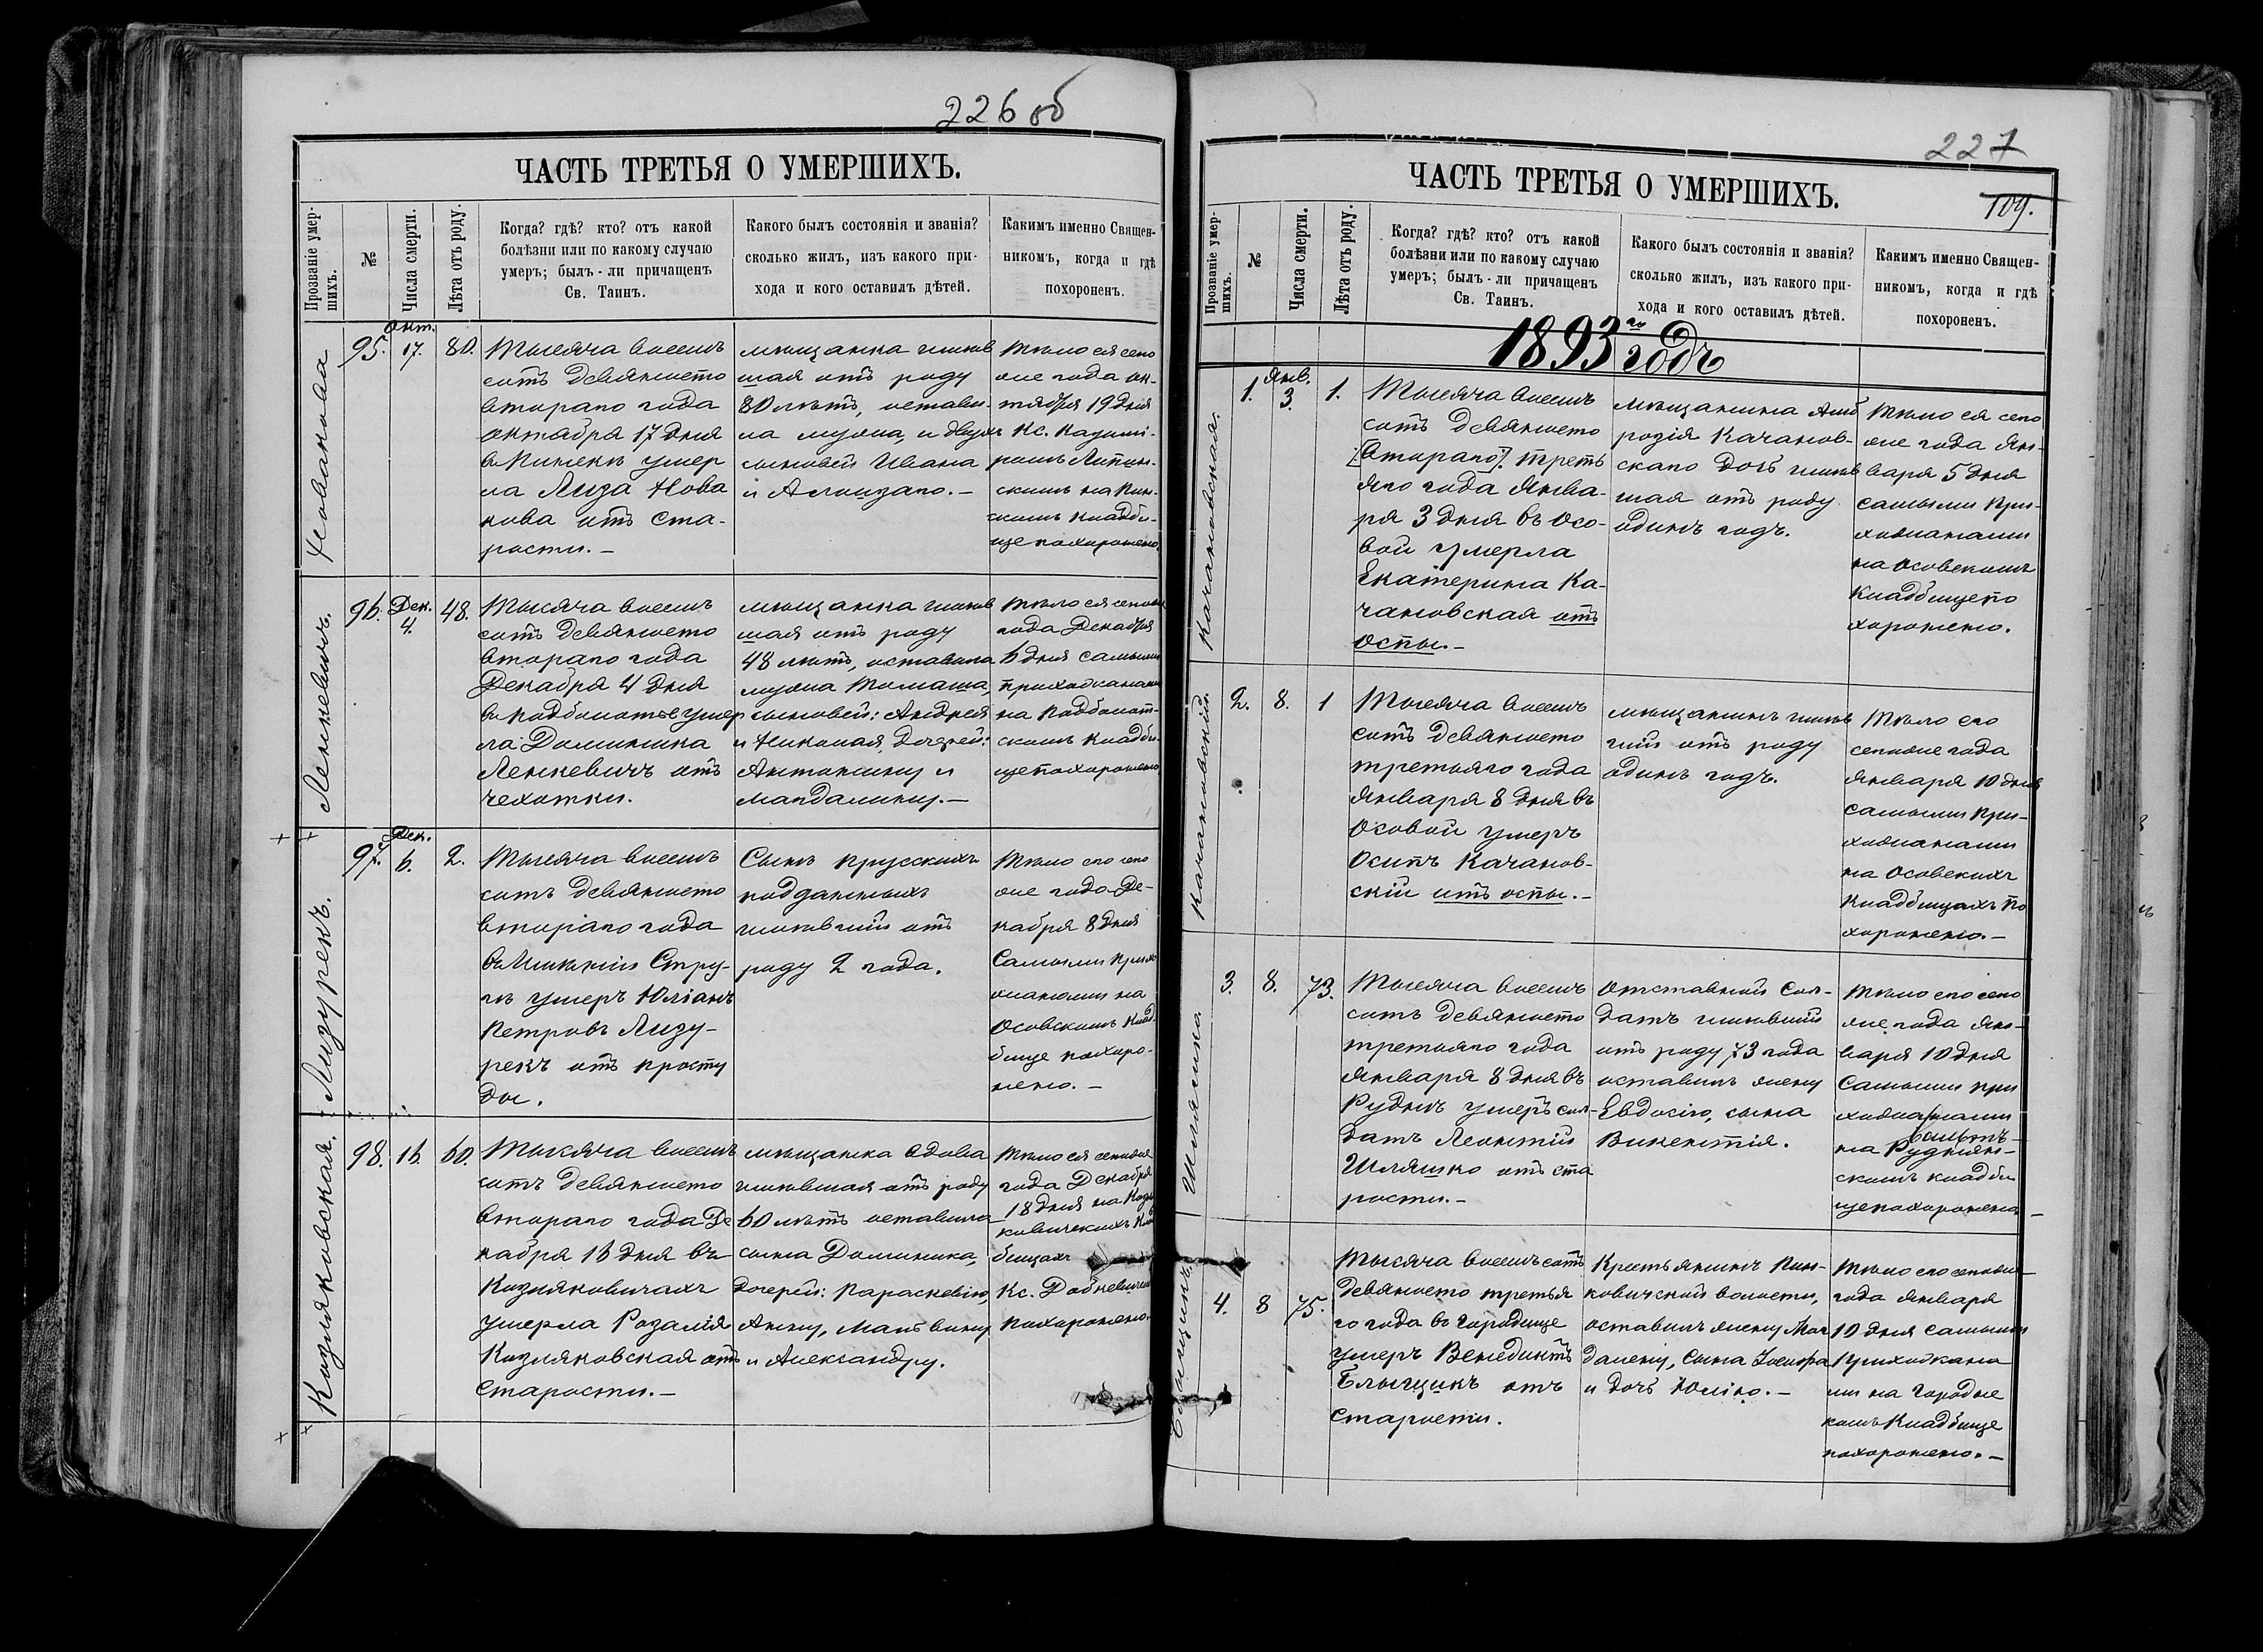 226 об
ЧАСТЬ ТРЕТЬЯ О УМЕРШИХЪ.
Прозваніе умер-
шихъ.
№
Числа смерти.
Лѣта отъ роду.
Когда? гдѣ? кто? отъ какой
болѣзни или по какому случаю
умеръ; былъ-ли причащенъ
Св. Таинъ.
Какого былъ состоянія и званія?
сколько жилъ, изъ какого при-
хода и кого оставилъ дѣтей.
Какимъ именно Священ-
никомъ, когда и гдѣ
похороненъ.
Новакова
95.
Окт.
17.
80.
Тысяча восемь
сотъ девяносто
втораго года
октября 17 дня
въ Пинскѣ умер
ла Луза Нова
кова отъ ста-
рости.–
мѣщанка жив
шая отъ роду
80 лѣтъ, остави-
ла мужа, и двухъ
сыновей Ивана
и Алоизаго.–
Тѣло ея сего
же года ок-
тября 19 дня
Кс. Казими-
ромъ Липин-
скимъ на Пин-
скомъ кладби-
ще похоронено.
Ленкевичъ.
96.
Дек.
4.
48.
Тысяча восемь
сотъ девяносто
втораго года
Декабря 4 дня
въ Подболотье умер
ла Доминика
Ленкевичъ отъ
чехотки.
мѣщанка жив
шая отъ роду
48 лѣтъ, оставила
мужа Томаша,
сыновей: Андрея
и Николая, дочерей:
Антонину и
Магдалину.–
Тѣло ея сего же
года Декабря
6 дня самыми
прихожанами
на Подболот-
скомъ кладби-
ще похоронено
Лизурекъ.
97.
Дек.
6.
2.
Тысяча восемь
сотъ девяносто
втораго года
умеръ Юліанъ
Петровъ Лизу-
рекъ отъ просту
ды.
Сынъ прусскихъ
подданныхъ
жившій отъ
роду 2 года.
Тѣло его сего
же года Де-
кабря 8 дня
Самыми прихо
жанами на
Осовскомъ клад-
бище похоро-
нено.–
Козляковская.
98.
16.
60.
Тысяча восемь
сотъ девяносто
втораго года Де
кабря 16 дня въ
Козляковичахъ
умерла Розалія
Козляковская отъ
старости.–
мѣщанка вдова
жившая отъ роду
60 лѣтъ оставила
сына Доминика,
дочерей: Параскевію,
Анну, Мальвину
и Александру.
Тѣло ея сего же
года Декабря
18 дня на Козля
ковическихъ клад
бищахъ
Кс.
похоронено.
227
109.
ЧАСТЬ ТРЕТЬЯ О УМЕРШИХЪ.
Прозваніе умер-
шихъ.
№
Числа смерти.
Лѣта отъ роду.
Когда? гдѣ? кто? отъ какой
болѣзни или по какому случаю
умеръ; былъ-ли причащенъ
Св. Таинъ.
Какого былъ состоянія и званія?
сколько жилъ, изъ какого при-
хода и кого оставилъ дѣтей.
Какимъ именно Священ-
никомъ, когда и гдѣ
похороненъ.
1893го годъ
Качановская.
1.
Янв.
3.
1.
Тысяча восемь
сотъ девяносто
[втораго]. треть
яго года Янва-
ря 3 дня въ Осо-
вой умерла
Екатерина Ка-
чановская отъ
оспы.–
мѣщанина Амб
розія Качанов-
скаго дочь жив
шая отъ роду
одинъ годъ.
Тѣло ея сего
же года Ян-
варя 5 дня
самыми При-
хожанами
на Осовскомъ
Кладбище по
хоронено.
Качановскій.
2.
8.
1
Тысяча восемь
сотъ девяносто
третьяго года
Января 8 дня въ
Осовой умеръ
Осипъ Качанов-
скій отъ оспы.–
мѣщанинъ жив
шій отъ роду
одинъ годъ.
Тѣло его
сего же года
Января 10 дня
самыми При-
хожанами
на Осовскихъ
Кладбищахъ по
хоронено.–
Шляшко
3.
8.
73.
Тысяча восемь
сотъ девяносто
третьяго года
Января 8 дня въ
Руднѣ умеръ сол-
датъ Леонтій
Шляшко отъ ста
рости.–
Отставной сол-
датъ жившій
отъ роду 73 года
оставилъ жену
Евдокію, сына
Викентія.
Тѣло его сего
же года Ян-
варя 10 дня
Самыми при
хожанами
на Руднян-
скомъ кладби
ще похоронено–
4.
8
75.
Тысяча восемь сотъ
девяносто третья
го года въ Городище
умеръ Венедиктъ
Блыщикъ отъ
старости.
Крестьянинъ Пин-
ковичской волости,
оставилъ жену Маг
далену, сына Іосифа
и дочь Юлію.–
Тѣло его сего же
года Января
10 дня самыми
Прихожана
ми на Городис
комъ Кладбище
похоронено.–